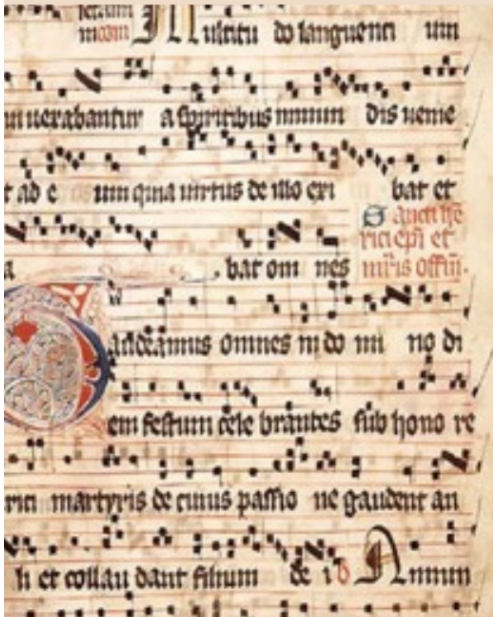 Multitu do languenti um
ui uexabantur a spiritibus inmun dis ueniе
t ad e um quia uirtus de illo exi bat et
a bat om nes
Sancti he
rici epi et
mris offm.
Gaudeamus omnes in do mi no di
em festum cele brantes sub hono re
rici martyris de cuius passio ne gaudent an
li et collau dant filium de i Annun